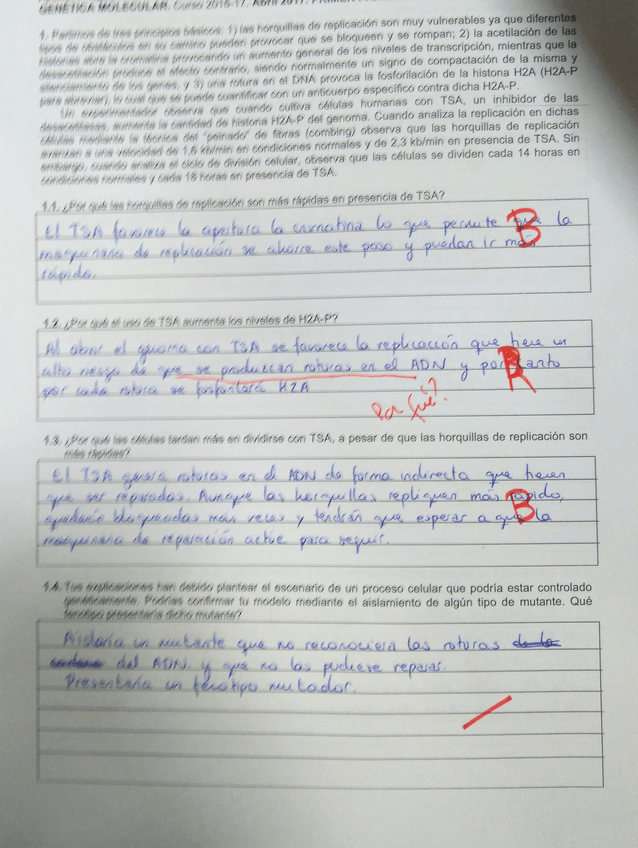 GENÉTICA MOLECULAR. Curso 2016-17. Abril 2017.
1. Partimos de tres principios básicos: 1) las horquillas de replicación son muy vulnerables ya que diferentes
tipos de obstáculos en su camino pueden provocar que se bloqueen y se rompan; 2) la acetilación de las
histonas abre la cromatina provocando un aumento general de los niveles de transcripción, mientras que la
desacetilación produce el efecto contrario, siendo normalmente un signo de compactación de la misma y
silenciamiento de los genes, y 3) una rotura en el DNA provoca la fosforilación de la histona H2A (H2A-P
para abreviar), lo cual que se puede cuantificar con un anticuerpo específico contra dicha H2A-P.
Un experimentador observa que cuando cultiva células humanas con TSA, un inhibidor de las
desacetilasas, aumenta la cantidad de histona H2A-P del genoma. Cuando analiza la replicación en dichas
células mediante la técnica del "peinado" de fibras (combing) observa que las horquillas de replicación
avanzan a una velocidad de 1,6 kb/min en condiciones normales y de 2,3 kb/min en presencia de TSA. Sin
embargo, cuando analiza el ciclo de división celular, observa que las células se dividen cada 14 horas en
condiciones normales y cada 18 horas en presencia de TSA.
1.1. ¿Por qué las horquillas de replicación son más rápidas en presencia de TSA?
El TSA favorece la apertura la cromatina lo que permite que la
maquinaria de replicación se ahorre este paso y puedan ir más
rápido.
B
1.2. ¿Por qué el uso de TSA aumenta los niveles de H2A-P?
Al abrir el genoma con TSA se favorece la replicación que tiene un
alto riesgo de que se produzcan roturas en el ADN y por tanto
por cada rotura se fosforilará H2A
R
Por qué?
1.3. ¿Por qué las células tardan más en dividirse con TSA, a pesar de que las horquillas de replicación son
más rápidas?
El TSA genera roturas en el ADN de forma indirecta que tienen
que ser reparadas. Aunque las horquillas repliquen más rápido,
quedarán bloqueadas más veces y tendrán que esperar a que la
maquinaria de reparación actúe para seguir.
B
1.4. Tus explicaciones han debido plantear el escenario de un proceso celular que podría estar controlado
genéticamente. Podrías confirmar tu modelo mediante el aislamiento de algún tipo de mutante. Qué
fenotipo presentaría dicho mutante?
Aislaría un mutante que no reconociera las roturas
del ADN y que no las pudiese reparar.
Presentaría un fenotipo mutador.